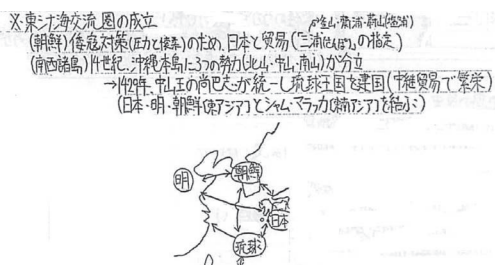 ※東シナ海交流圏の成立
釜山・薺浦・蔚山(塩浦)
(朝鮮)倭寇対策(圧力と懐柔)のため、日本と貿易(「三浦(さんぽ)」の指定)
(南西諸島)14世紀、沖縄本島に3つの勢力(北山・中山・南山)が分立
→1429年、中山王の尚巴志が統一し琉球王国を建国(中継貿易で繁栄)
(日本・明・朝鮮(東アジア)とシャム・マラッカ(東南アジア)を結ぶ)
朝鮮
明
日本
琉球